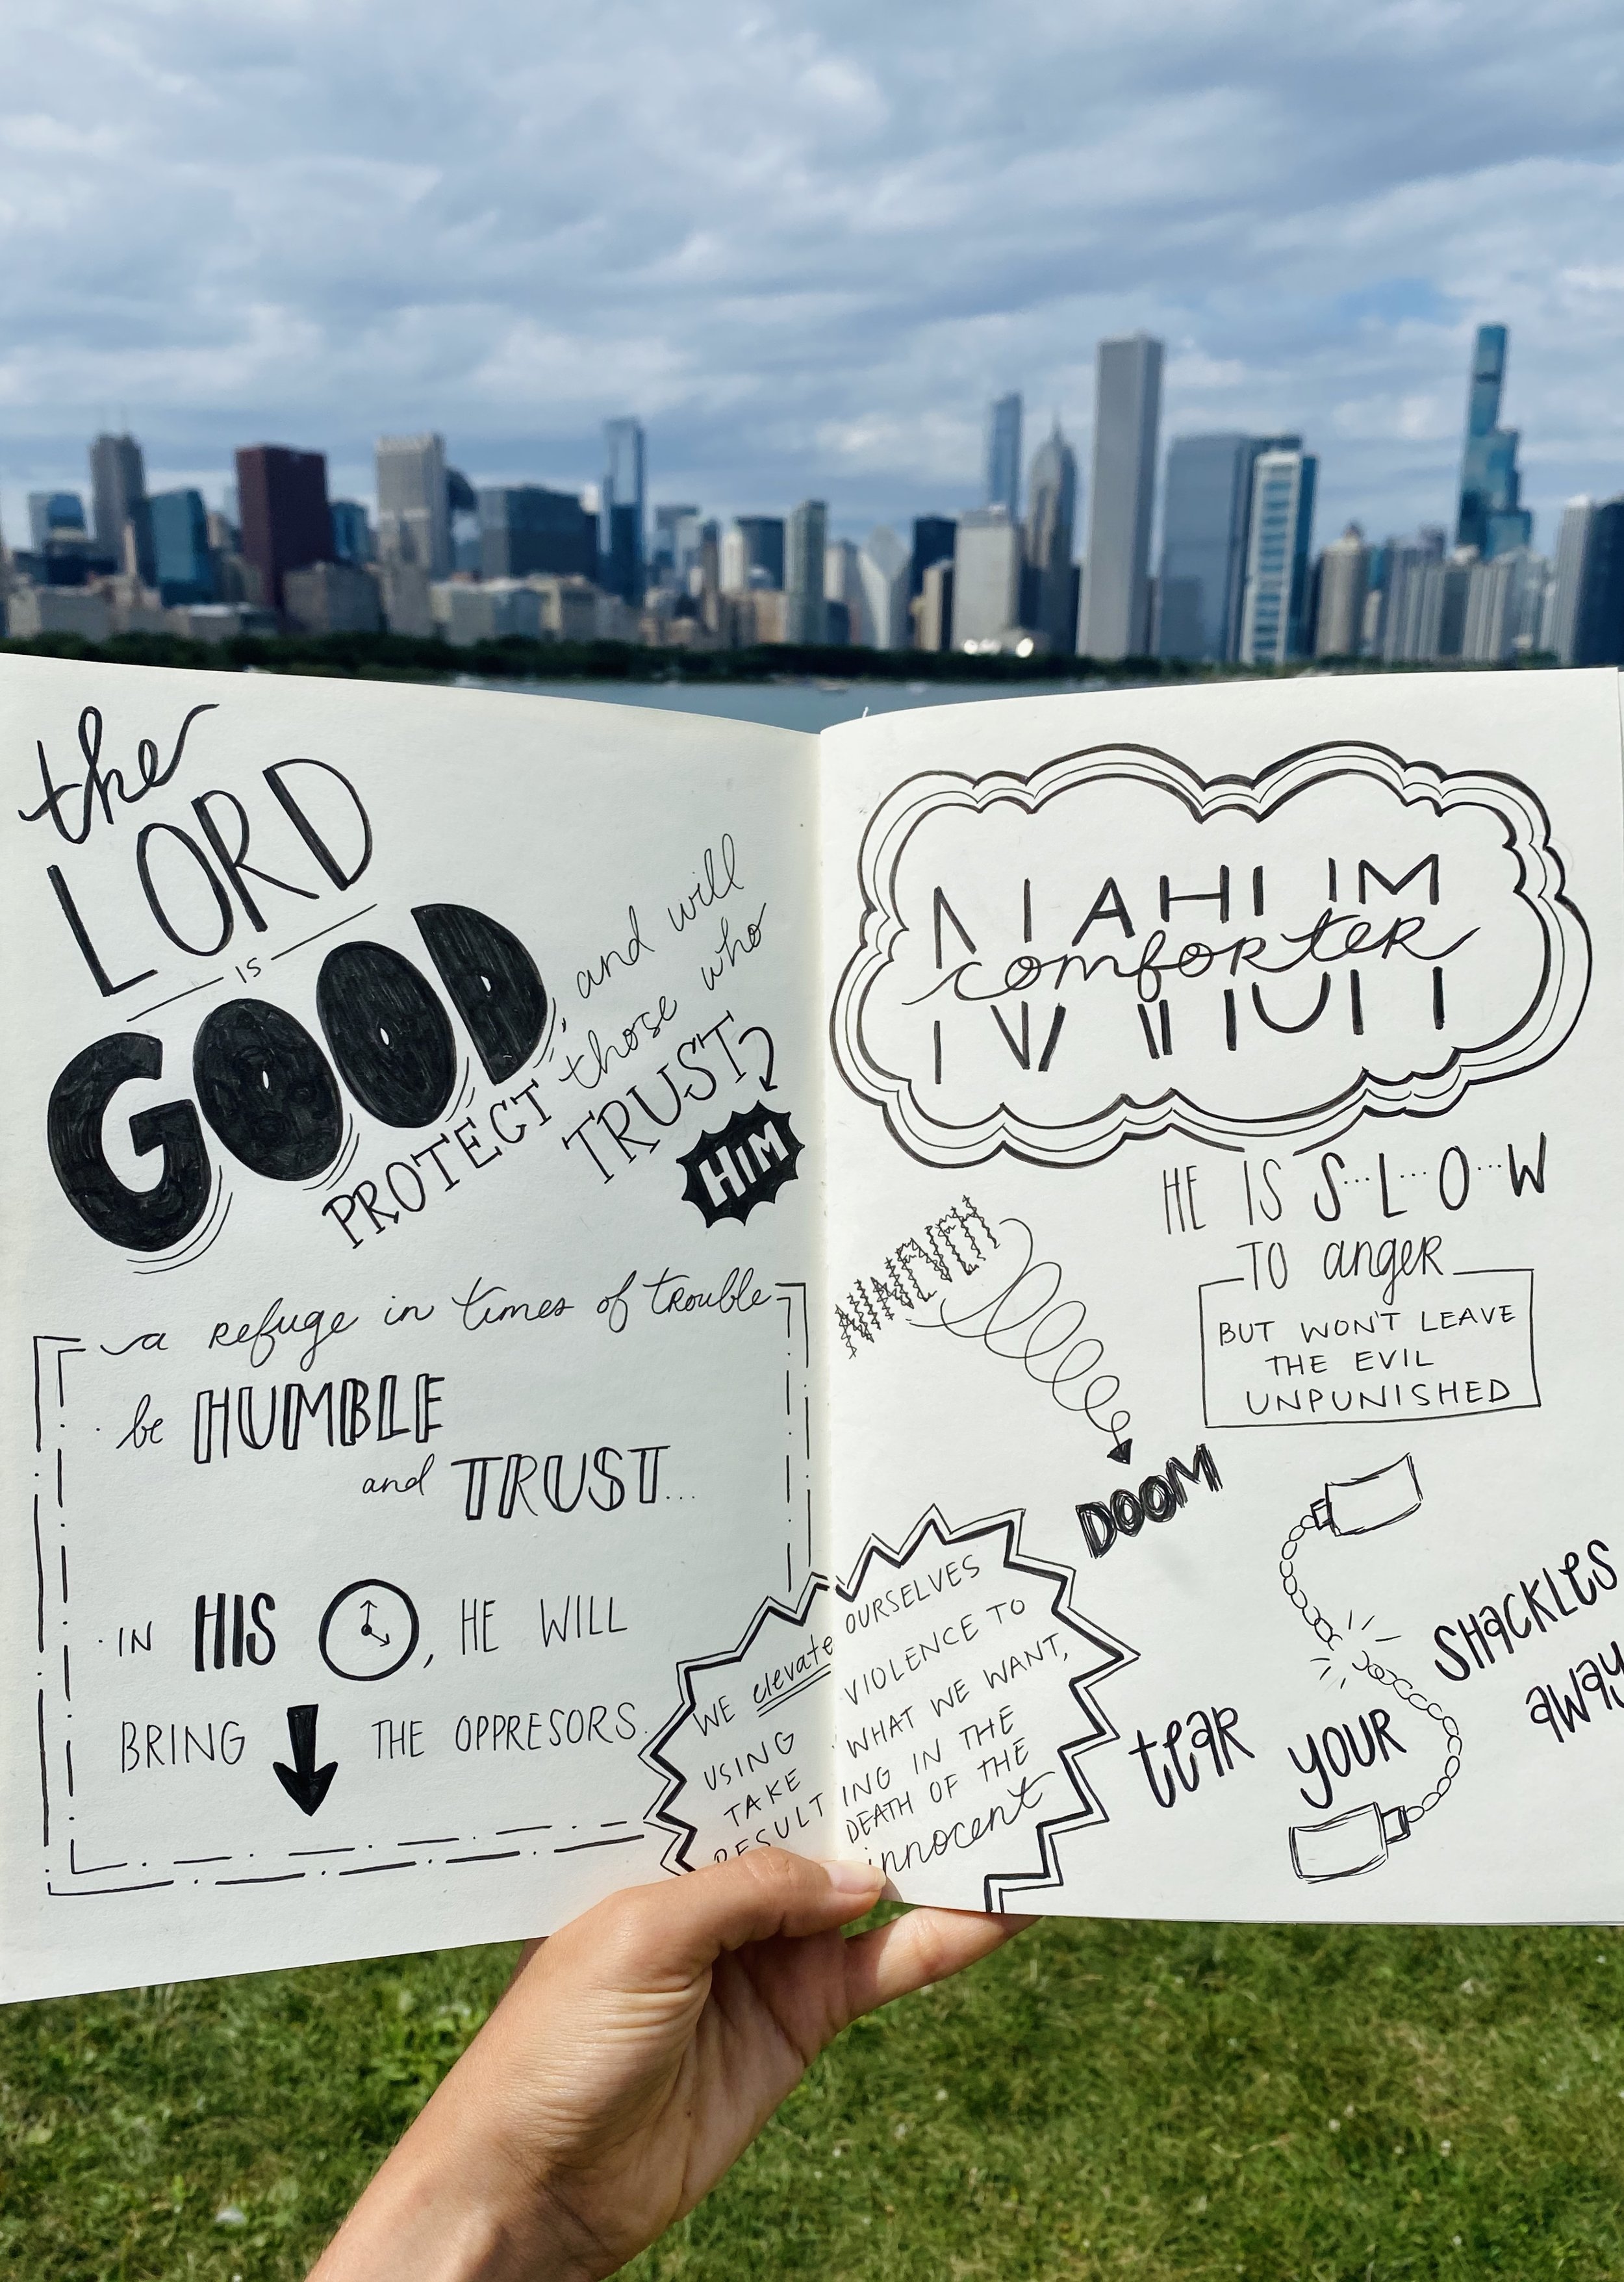 the
LORD
IS
GOOD, and will
PROTECT those who
TRUST
HIM
a refuge in times of trouble
· be HUMBLE
and TRUST...
· IN HIS , HE WILL
BRING THE OPPRESORS.
NAHUM
comforter
HE IS S...L...O...W
TO anger
BUT WON'T LEAVE
THE EVIL
UNPUNISHED
NINEVEH
DOOM
WE elevate OURSELVES
USING VIOLENCE TO
TAKE WHAT WE WANT,
RESULTING IN THE
DEATH OF THE
innocent
tear YOUR
SHACKLES
away